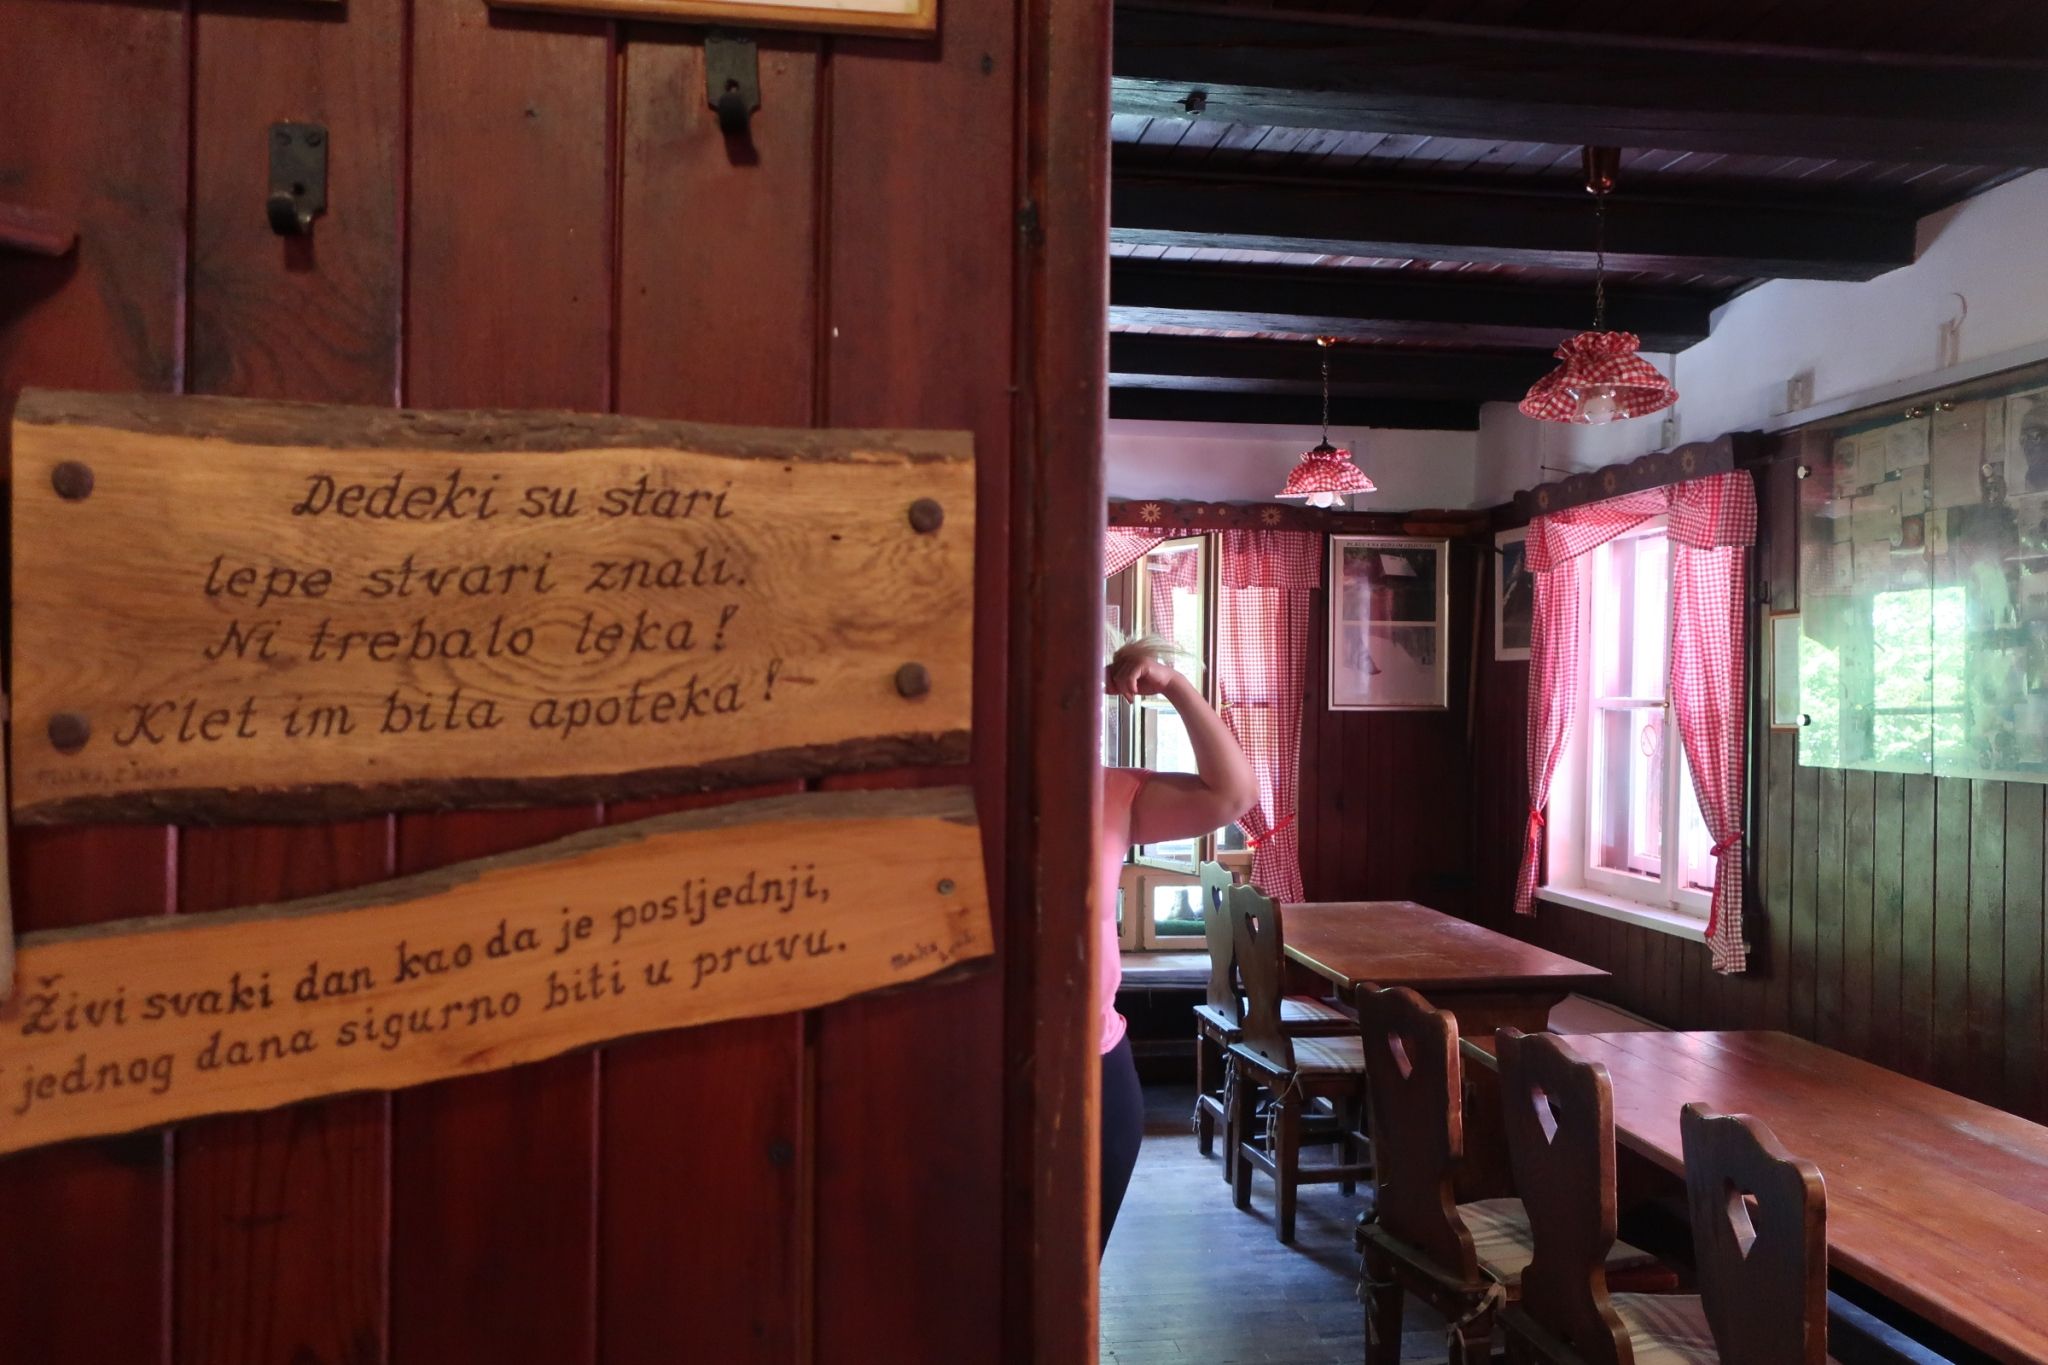 Dedeki su stari
lepe stvari znali.
Ni trebalo leka!
Klet im bila apoteka!
Živi svaki dan kao da je posljednji,
jednog dana sigurno biti u pravu.